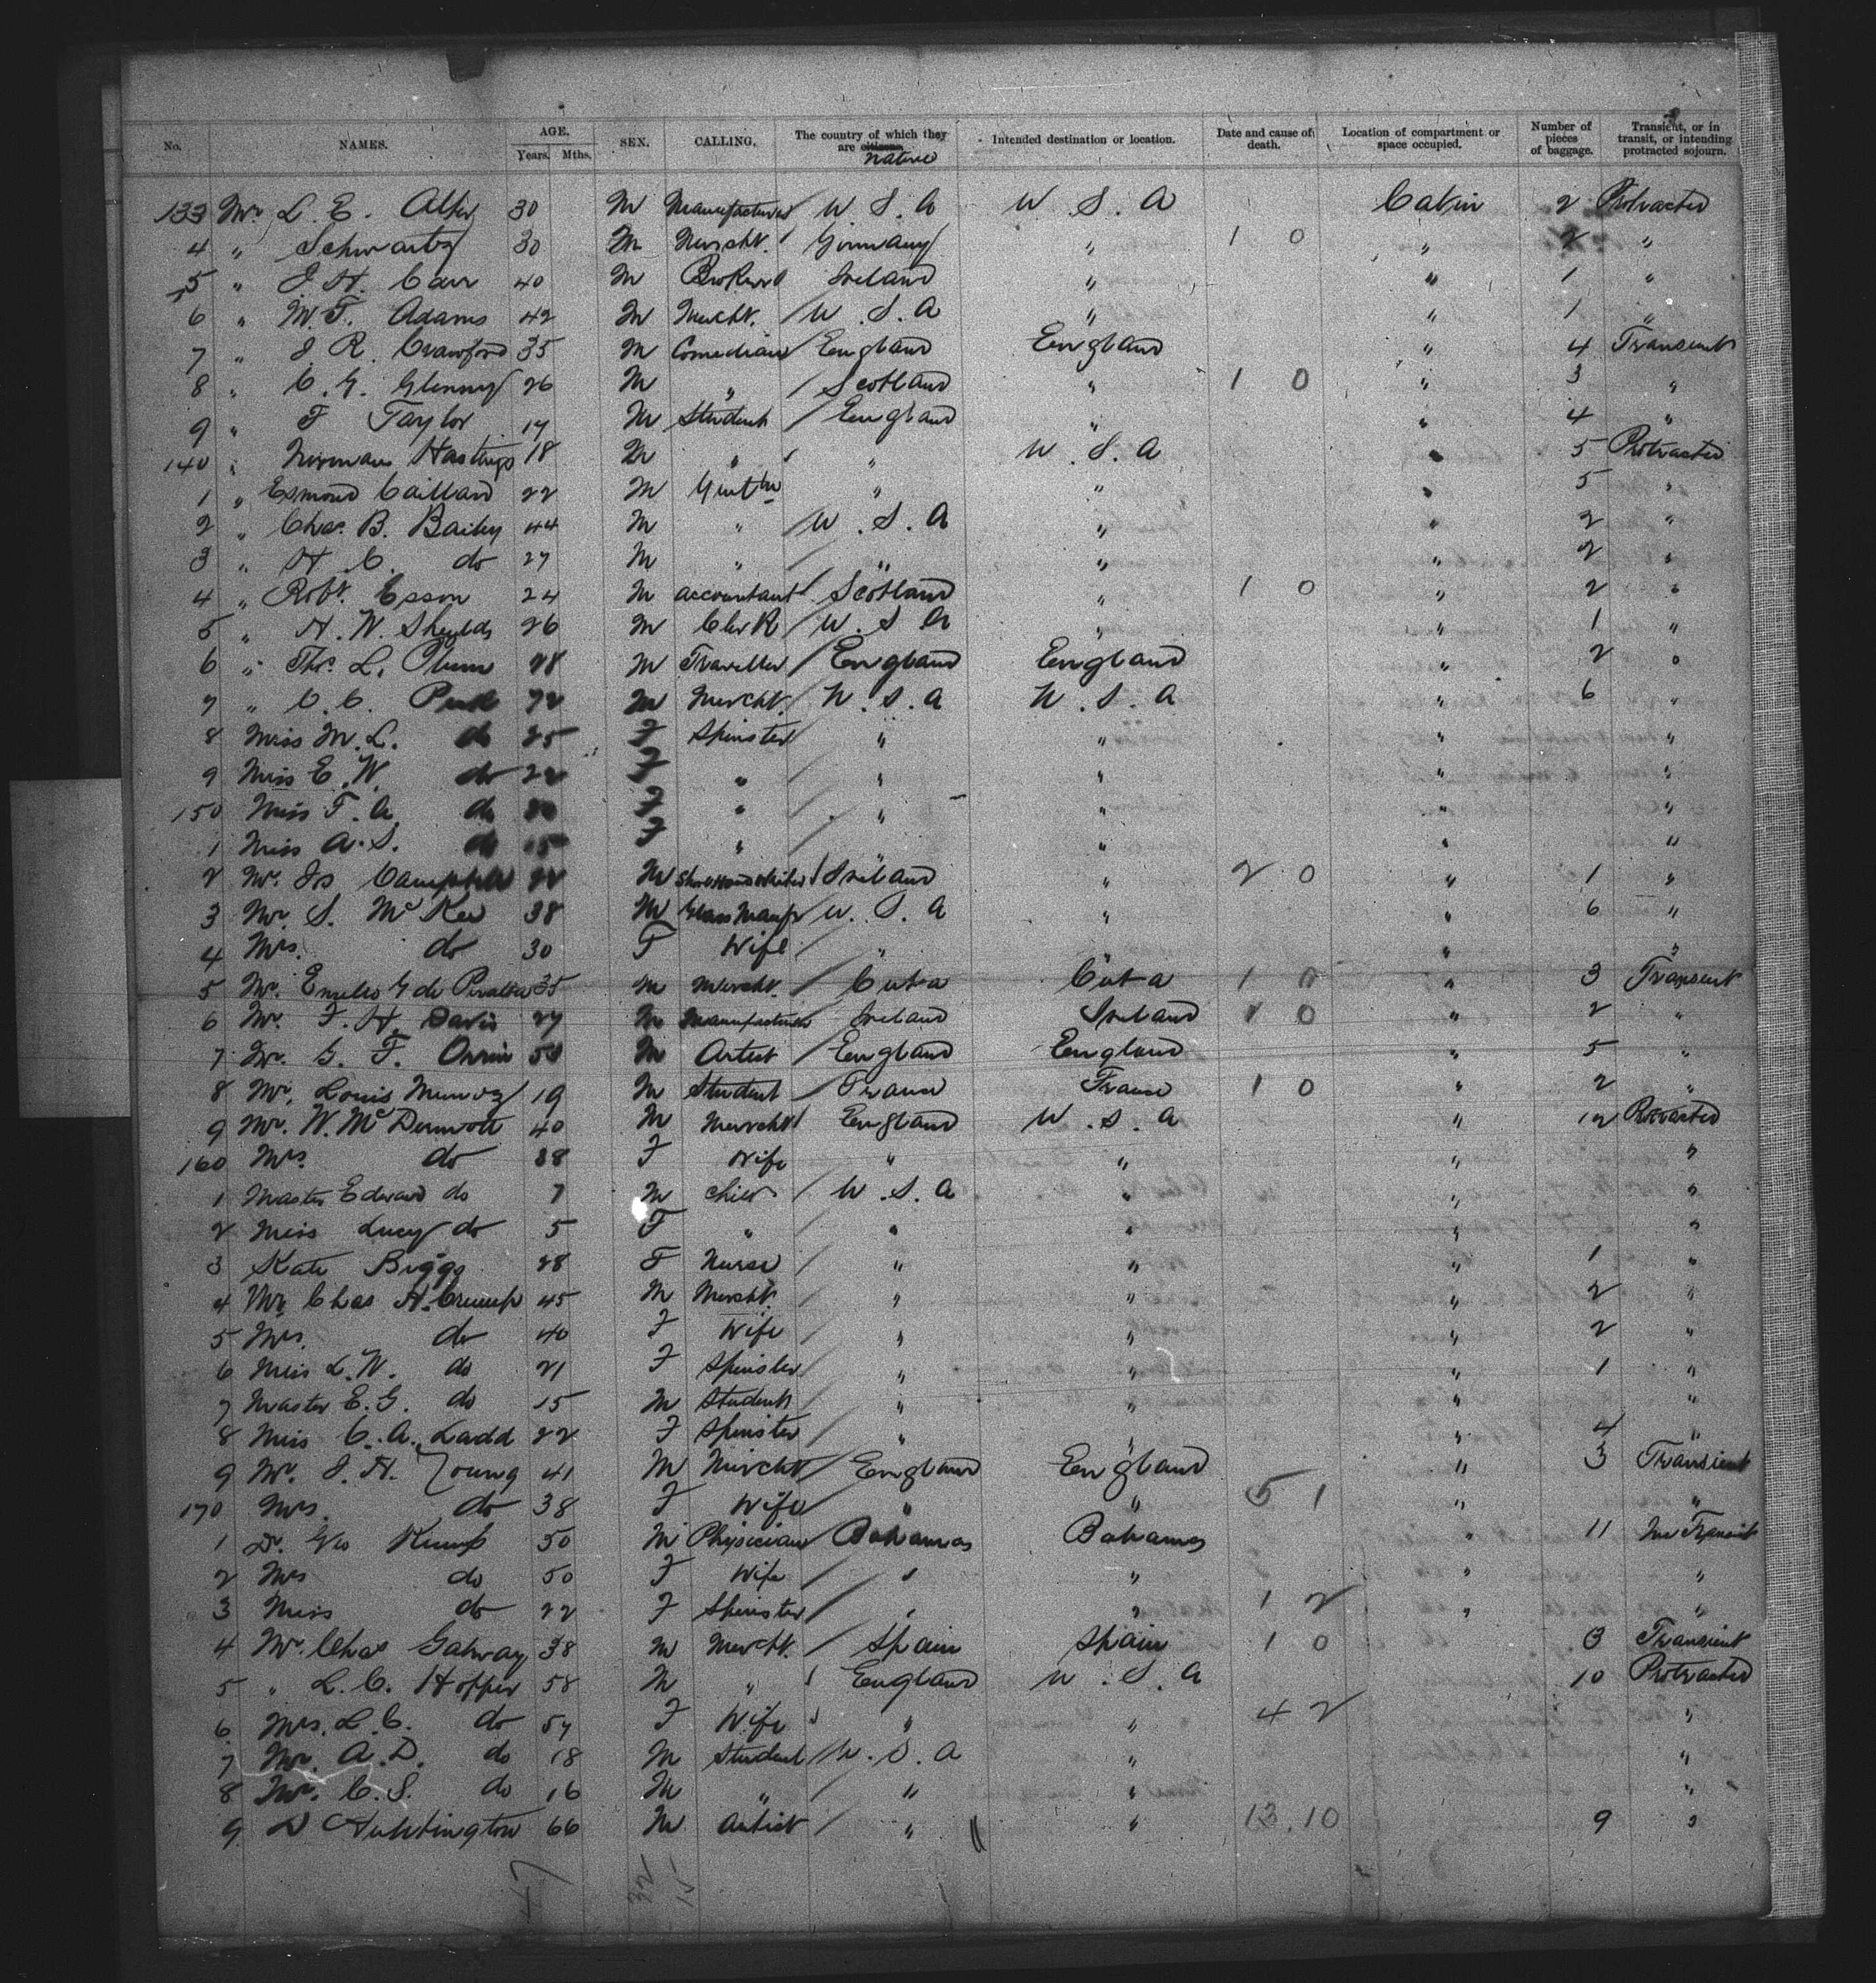 No. NAMES. AGE. Years. Mths. SEX. CALLING. The country of which they are citizens natives Intended destination or location. Date and cause of death. Location of compartment or space occupied. Number of pieces of baggage. Transient, or in transit, or intending protracted sojourn.
133 Mr L. E. 30 M Manufacturer / U. S. A U. S. A Cabin 2 Protracted
4 " Schwartz 30 M Mercht. / Germany " 1 0 " 2 "
5 " J. H. Carr 40 M Broker Ireland " " 1 "
6 " M. F. Adams 42 M Mercht. / U. S. A " " 1 "
7 " J. R. Crawford 35 M Comedian / England England " 4 Transient
8 " C. G. Glenny 26 M " / Scotland " 1 0 " 3 "
9 " F Taylor 17 M Student / England " " 4 "
140 " Norman Hastings 18 M " / " U. S. A " 5 Protracted
1 " Esmond Caillard 22 M Gentln " " " 5 "
2 " Chas. B. Bailey 44 M " / U. S. A " " 2 "
3 " H. C. do 27 M " / " " " 2 "
4 " Robt. Esson 24 M accountant / Scotland " 1 0 " 2 "
5 " H. W. Shields 26 M Clerk / U. S. A " " 1 "
6 " Thos. L. Plum 28 M Traveller / England England " 2 "
7 " C. C. 72 M Mercht. / U. S. A U. S. A " 6 "
8 Miss M. L. do 25 F Spinster / " " " "
9 Miss E. W. do 22 F " / " " " "
150 Miss F. A. do F " / " " " "
1 Miss A. S. do 15 F " / " " " "
2 Mr. Js Campbell 22 M Short Hand Writer / Ireland " 2 0 " 1 "
3 Mr. S. McKee 38 M Glass Manfr / U. S. A " " 6 "
4 Mrs. do 30 F Wife / " " " "
5 Mr. Emelio G de Peralta 35 M Mercht. / Cuba Cuba 1 0 " 3 Transient
6 Mr. F. H. Davis 27 M Manufacturer Ireland Ireland 1 0 " 2 "
7 Mr. G. F. Orrin M Artist / England England " 5 "
8 Mr. Louis Munoz 19 M Student / France France 1 0 " 2 "
9 Mr. W. McDermott 40 M Mercht / England U. S. A " 12 Protracted
160 Mrs. do 38 F Wife " " " "
1 Master Edward do 7 M Child / U. S. A " " "
2 Miss Lucy do 5 F " " " " "
3 Kate Biggs 28 F Nurse / " " " 1 "
4 Mr. Chas H. Crump 45 M Mercht. / " " " 2 "
5 Mrs. do 40 F Wife / " " " 2 "
6 Miss L. W. do 21 F Spinster / " " " 1 "
7 Master E. G. do 15 M Student / " " " "
8 Miss C. A. Ladd 22 F Spinster / " " " 4 "
9 Mr. J. H. Young 41 M Mercht / England England " 3 Transient
170 Mrs. do 38 F Wife / " " 5 1 " "
1 Dr. Geo Kemp 50 M Physician / Bahamas Bahamas " 11 In Transit
2 Mrs do 50 F Wife / " " " "
3 Miss do 22 F Spinster / " " 1 2 " "
4 Mr. Chas Galway 38 M Mercht. / Spain Spain 1 0 3 Transient
5 " L. C. Hopper 58 M " / England U. S. A 10 Protracted
6 Mrs. L. C. do 57 F Wife / " " 4 2 "
7 Mr. A. D. do 18 M Student / U. S. A " "
8 Mr. C. S. do 16 M " " " "
9 D Huntington 66 M Artist / " " 13.10 9 "
47 32 15